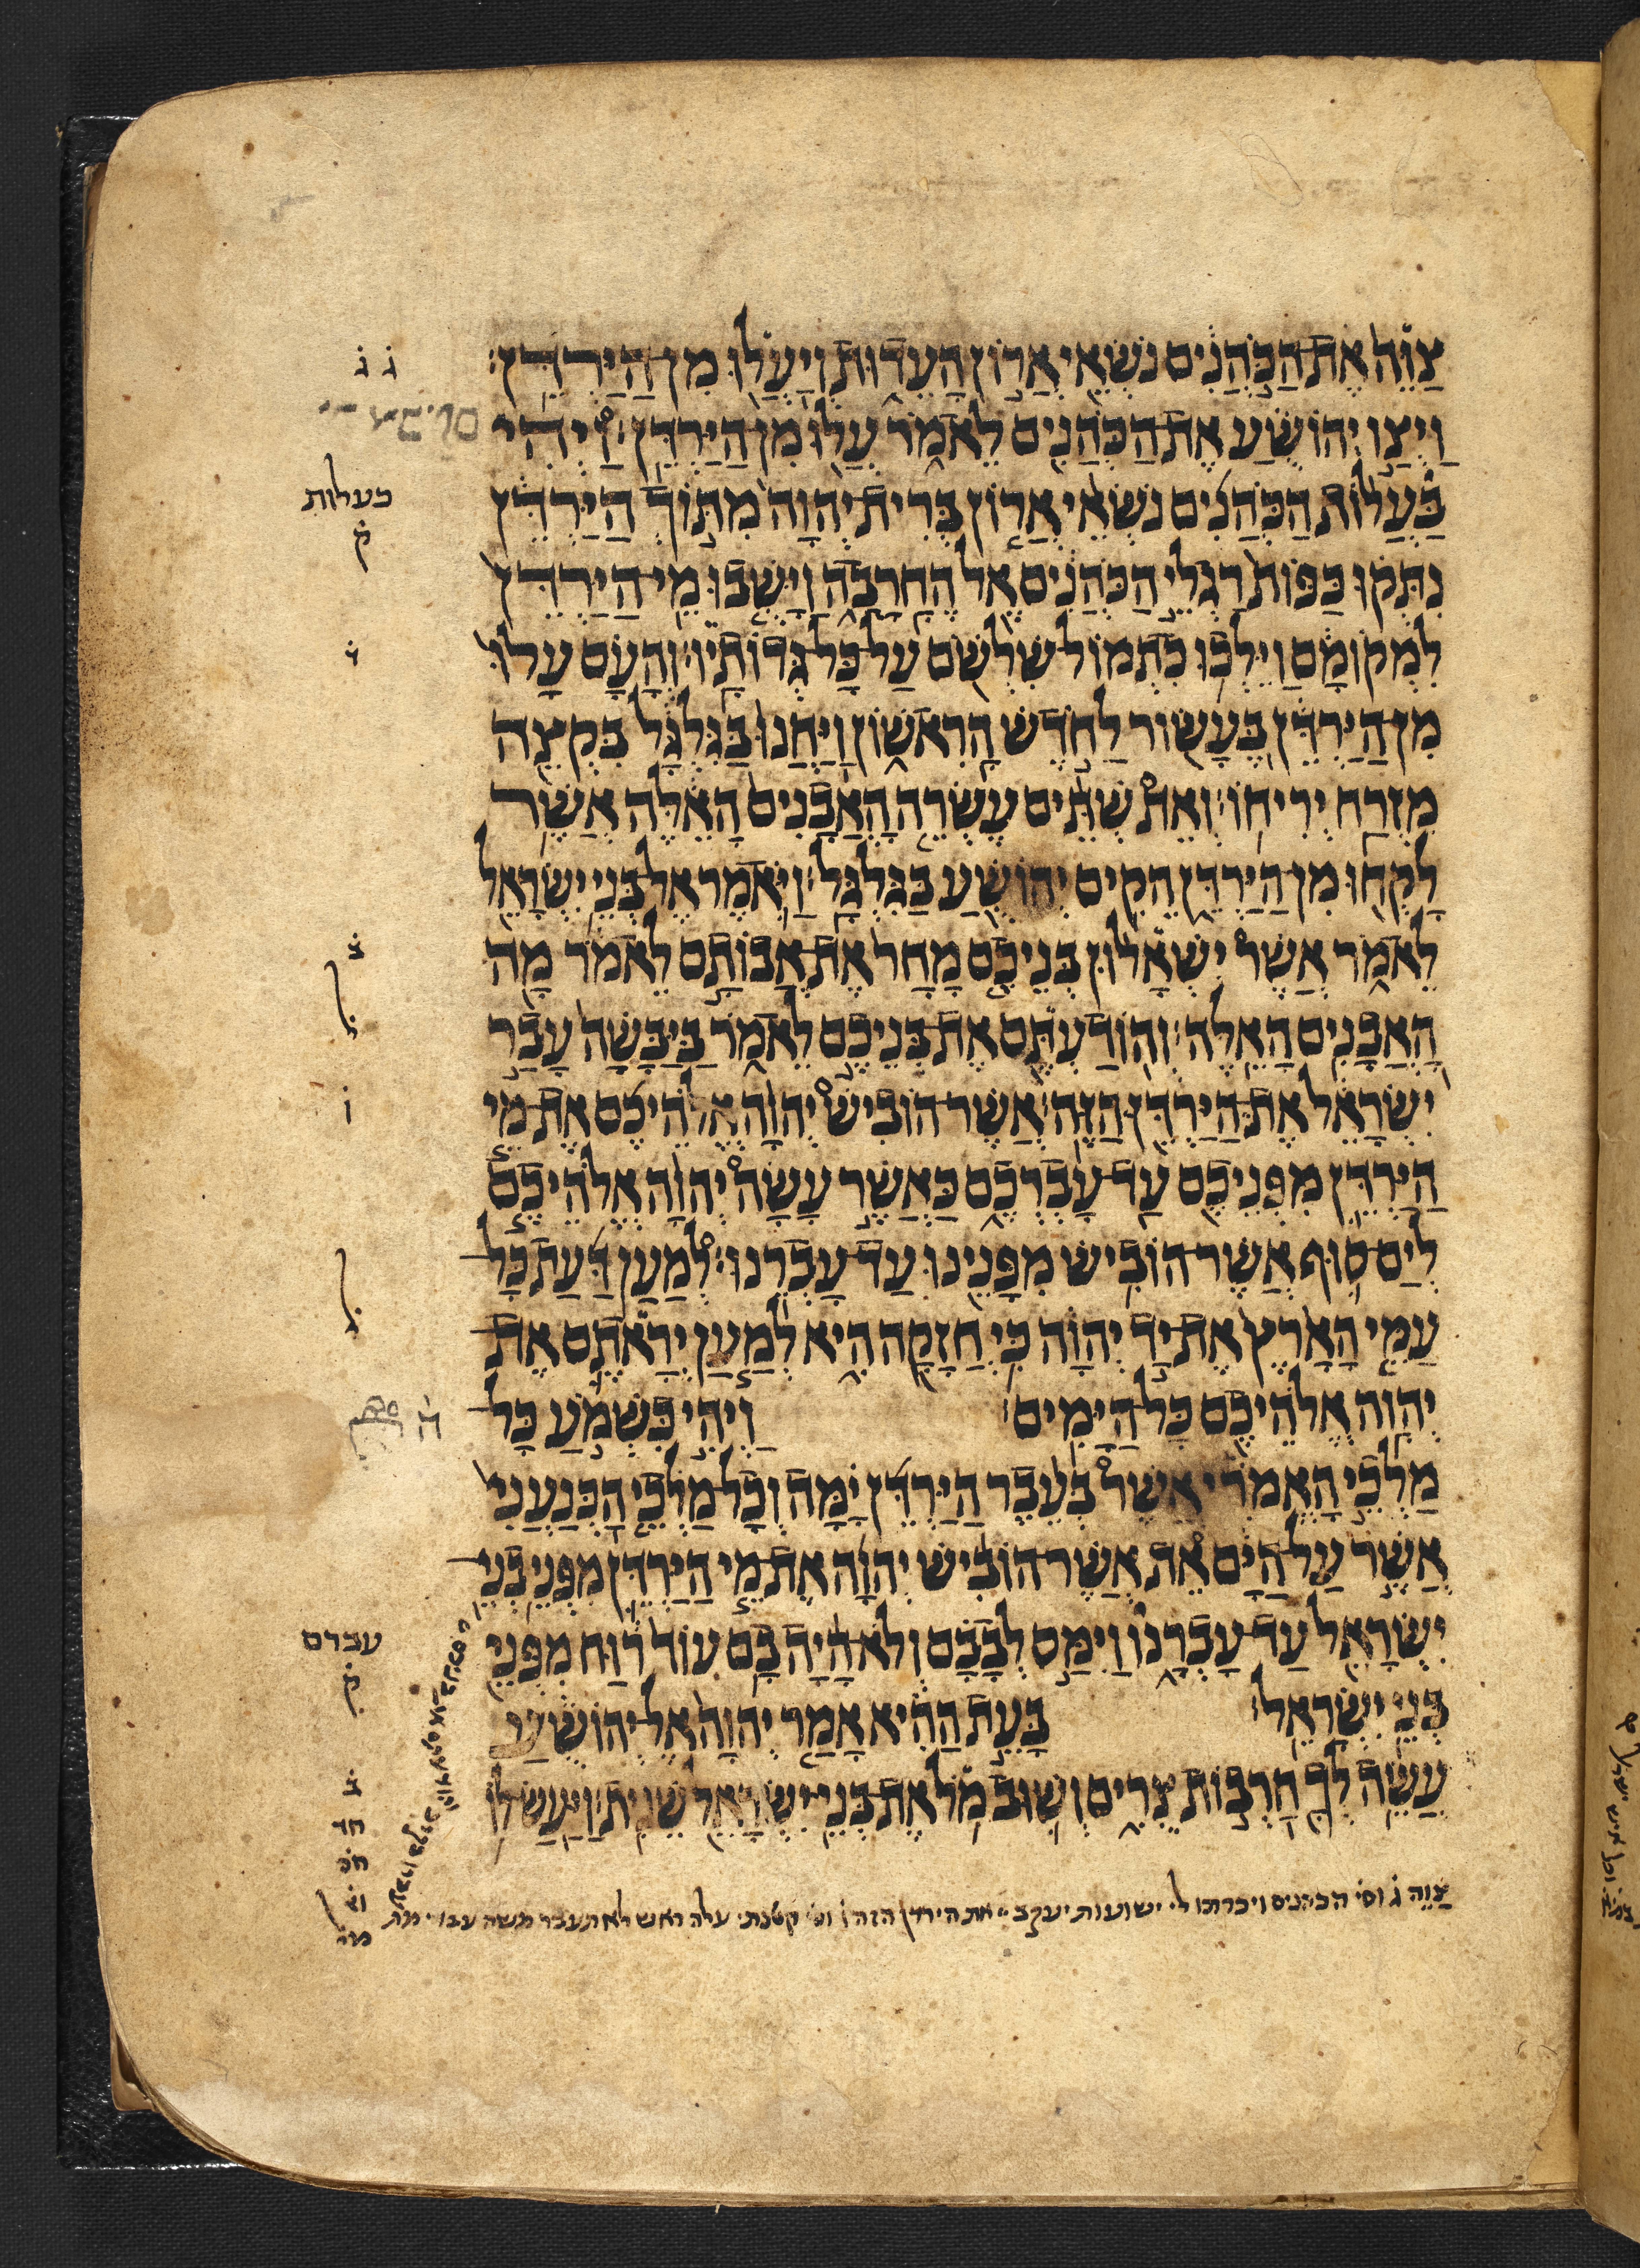 צַוֵּה אֶת הַכֹּהֲנִים נֹשְׂאֵי אֲרוֹן הָעֵדוּת וְיַעֲלוּ מִן הַיַּרְדֵּן׃
וַיְצַו יְהוֹשֻׁעַ אֶת הַכֹּהֲנִים לֵאמֹר עֲלוּ מִן הַיַּרְדֵּן׃ וַיְהִי
בַּעֲלוֹת הַכֹּהֲנִים נֹשְׂאֵי אֲרוֹן בְּרִית יְהוָה מִתּוֹךְ הַיַּרְדֵּן
נִתְּקוּ כַּפּוֹת רַגְלֵי הַכֹּהֲנִים אֶל הֶחָרָבָה וַיָּשֻׁבוּ מֵי הַיַּרְדֵּן
לִמְקוֹמָם וַיֵּלְכוּ כִתְמוֹל שִׁלְשׁוֹם עַל כָּל גְּדוֹתָיו׃ וְהָעָם עָלוּ
מִן הַיַּרְדֵּן בֶּעָשׂוֹר לַחֹדֶשׁ הָרִאשׁוֹן וַיַּחֲנוּ בַּגִּלְגָּל בִּקְצֵה
מִזְרַח יְרִיחוֹ׃ וְאֵת שְׁתֵּים עֶשְׂרֵה הָאֲבָנִים הָאֵלֶּה אֲשֶׁר
לָקְחוּ מִן הַיַּרְדֵּן הֵקִים יְהוֹשֻׁעַ בַּגִּלְגָּל׃ וַיֹּאמֶר אֶל בְּנֵי יִשְׂרָאֵל
לֵאמֹר אֲשֶׁר יִשְׁאָלוּן בְּנֵיכֶם מָחָר אֶת אֲבוֹתָם לֵאמֹר מָה
הָאֲבָנִים הָאֵלֶּה׃ וְהוֹדַעְתֶּם אֶת בְּנֵיכֶם לֵאמֹר בַּיַּבָּשָׁה עָבַר
יִשְׂרָאֵל אֶת הַיַּרְדֵּן הַזֶּה׃ אֲשֶׁר הוֹבִישׁ יְהוָה אֱלֹהֵיכֶם אֶת מֵי
הַיַּרְדֵּן מִפְּנֵיכֶם עַד עָבְרְכֶם כַּאֲשֶׁר עָשָׂה יְהוָה אֱלֹהֵיכֶם
לְיַם סוּף אֲשֶׁר הוֹבִישׁ מִפָּנֵינוּ עַד עָבְרֵנוּ׃ לְמַעַן דַּעַת כָּל
עַמֵּי הָאָרֶץ אֶת יַד יְהוָה כִּי חֲזָקָה הִיא לְמַעַן יְרָאתֶם אֶת
יְהוָה אֱלֹהֵיכֶם כָּל הַיָּמִים׃ וַיְהִי כִשְׁמֹעַ כָּל
מַלְכֵי הָאֱמֹרִי אֲשֶׁר בְּעֵבֶר הַיַּרְדֵּן יָמָּה וְכָל מַלְכֵי הַכְּנַעֲנִי
אֲשֶׁר עַל הַיָּם אֵת אֲשֶׁר הוֹבִישׁ יְהוָה אֶת מֵי הַיַּרְדֵּן מִפְּנֵי בְנֵי
יִשְׂרָאֵל עַד עָבְרָנוּ וַיִּמַּס לְבָבָם וְלֹא הָיָה בָם עוֹד רוּחַ מִפְּנֵי
בְּנֵי יִשְׂרָאֵל׃ בָּעֵת הַהִיא אָמַר יְהוָה אֶל יְהוֹשֻׁעַ
עֲשֵׂה לְךָ חַרְבוֹת צֻרִים וְשׁוּב מֹל אֶת בְּנֵי יִשְׂרָאֵל שֵׁנִית׃ וַיַּעַשׂ לוֹ
צַוֵּה ג וסי הכהנים ויכרתו לי ישועות יעקב את הירדן הזה ו וסי קטנתי עלה ראש לא תעבר משה עבדי מת
ג ג
כעלות
ק
ו
עברם
ק